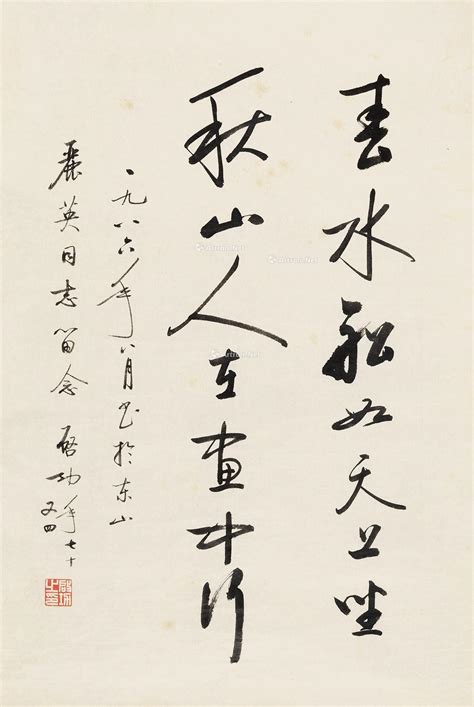 春水船如天上坐
秋山人在畫中行
一九八六年八月书於东山
麗英同志留念 啓功年七十
又四
Artron.Net